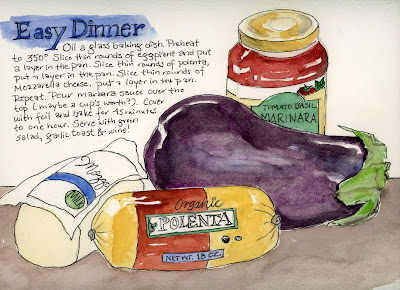 Easy Dinner
Oil a glass baking dish. Preheat
to 350°. Slice thin rounds of eggplant and put
a layer in the pan. Slice thin rounds of polenta,
put a layer in the pan. Slice thin rounds of
Mozzarella cheese, put a layer in the pan.
Repeat. Pour marinara sauce over the
top (maybe a cup's worth?). Cover
with foil and bake for 45 minutes
to one hour. Serve with green
salad, garlic toast & wine!
TOMATO BASIL
MARINARA
Organic
POLENTA
NET WT. 18 OZ.